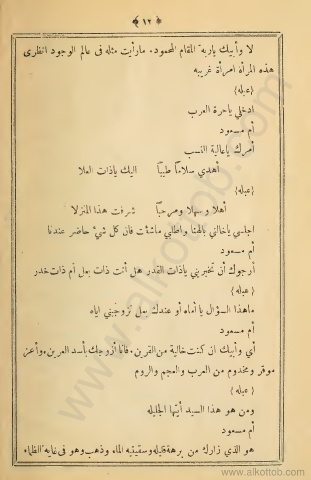 ﴿ ١٢ ﴾
لا وأبيك ياربة المقام المحمود. مارأيت مثله فى عالم الوجود انظرى
هذه المرأة امرأة غريبه
{عبله}
ادخلي ياحرة العرب
أم مسعود
أمرك ياعالية النسب
أهدي سلاماً طيباً اليك ياذات العلا
{عبله}
أهلا وسهلا ومرحباً شرفت هذا المنزلا
اجلسي ياخالتي بالهنا واطلبي ماشئت فان كل شيء حاضر عندنا
أم مسعود
أرجوك أن تخبريني ياذات القدر هل أنت ذات بعل أم ذات خدر
{عبله}
ماهذا السؤال يا أماه أو عندك بعل تزوجيني اياه
أم مسعود
أي وأبيك ان كنت خالية من القرين. فانا أزوجك بأسد العرين. وأعز
موقر ومخدوم من العرب والعجم والروم
{عبله}
ومن هو هذا السيد أيتها الجليله
أم مسعود
هو الذي زارك من برهة قليله وسقيتيه الماء وذهب وهو فى غاية الظماء
www.alkottob.com
www.alkottob.com